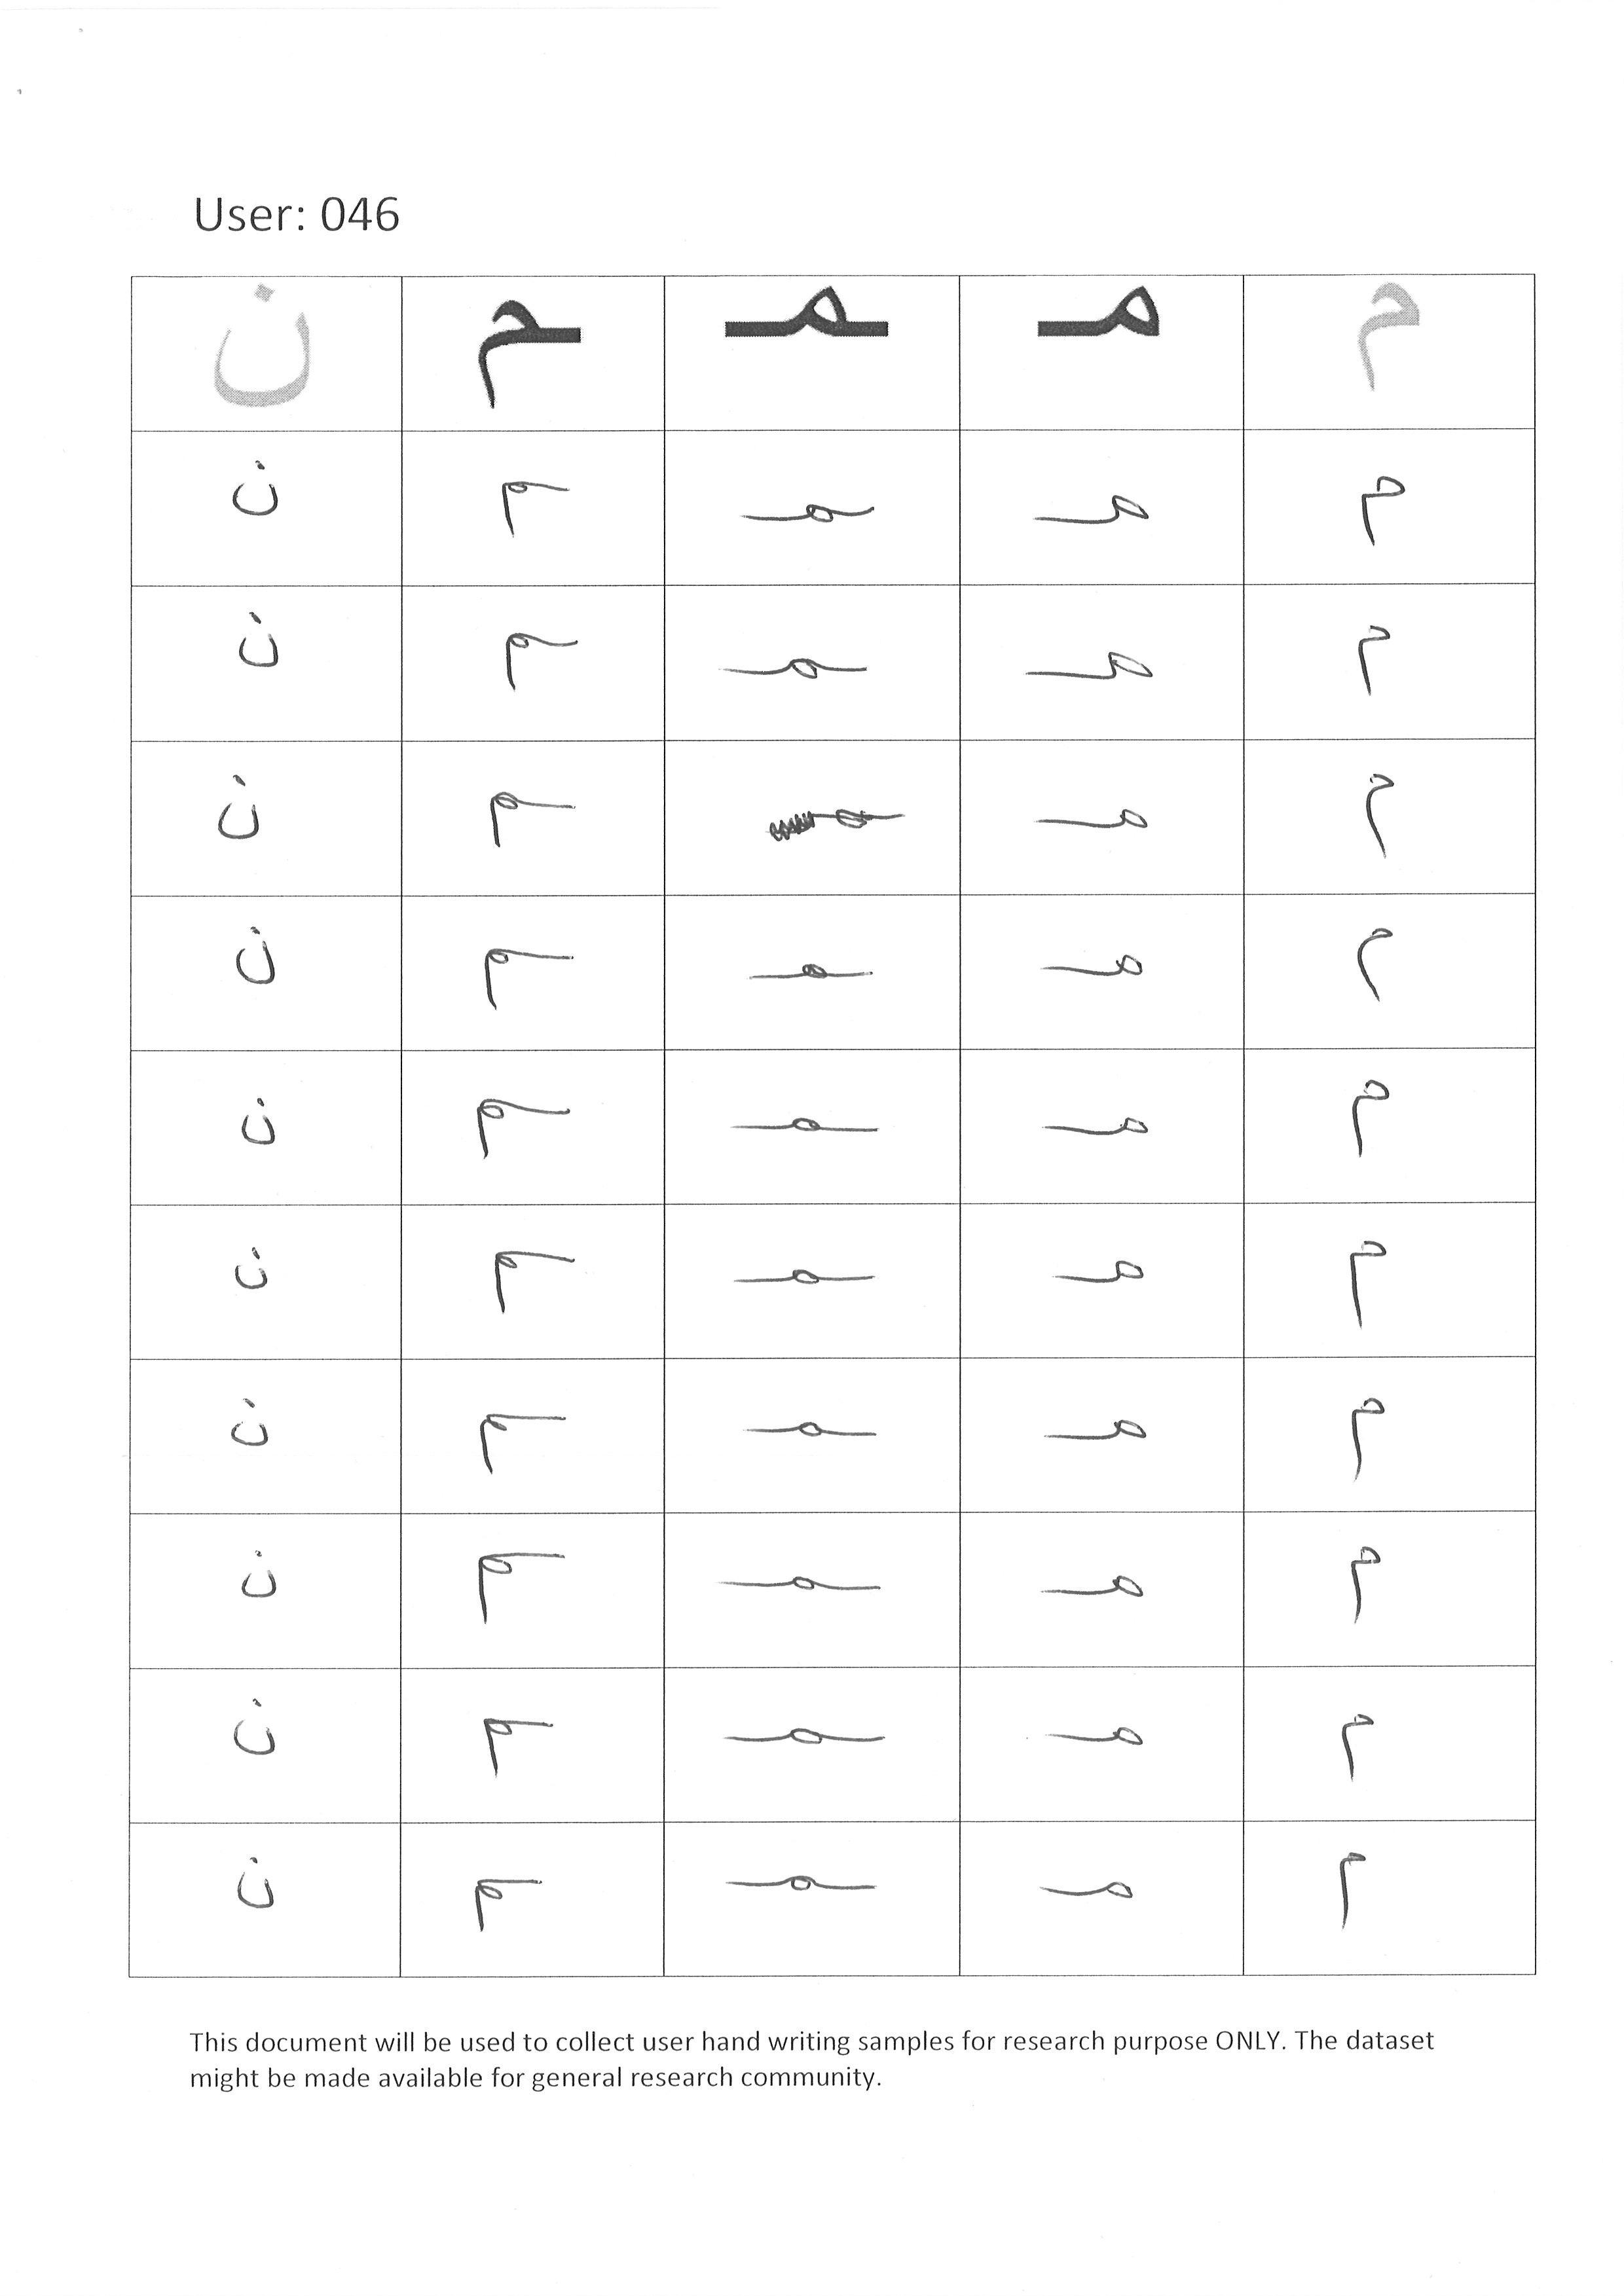 User: 046
م مـ ـمـ ـم ن
م مـ ـمـ ـم ن
م مـ ـمـ ـم ن
م مـ ـم ن
م مـ ـمـ ـم ن
م مـ ـمـ ـم ن
م مـ ـمـ ـم ن
م مـ ـمـ ـم ن
م مـ ـمـ ـم ن
م مـ ـمـ ـم ن
م مـ ـمـ ـم ن
This document will be used to collect user hand writing samples for research purpose ONLY. The dataset
might be made available for general research community.